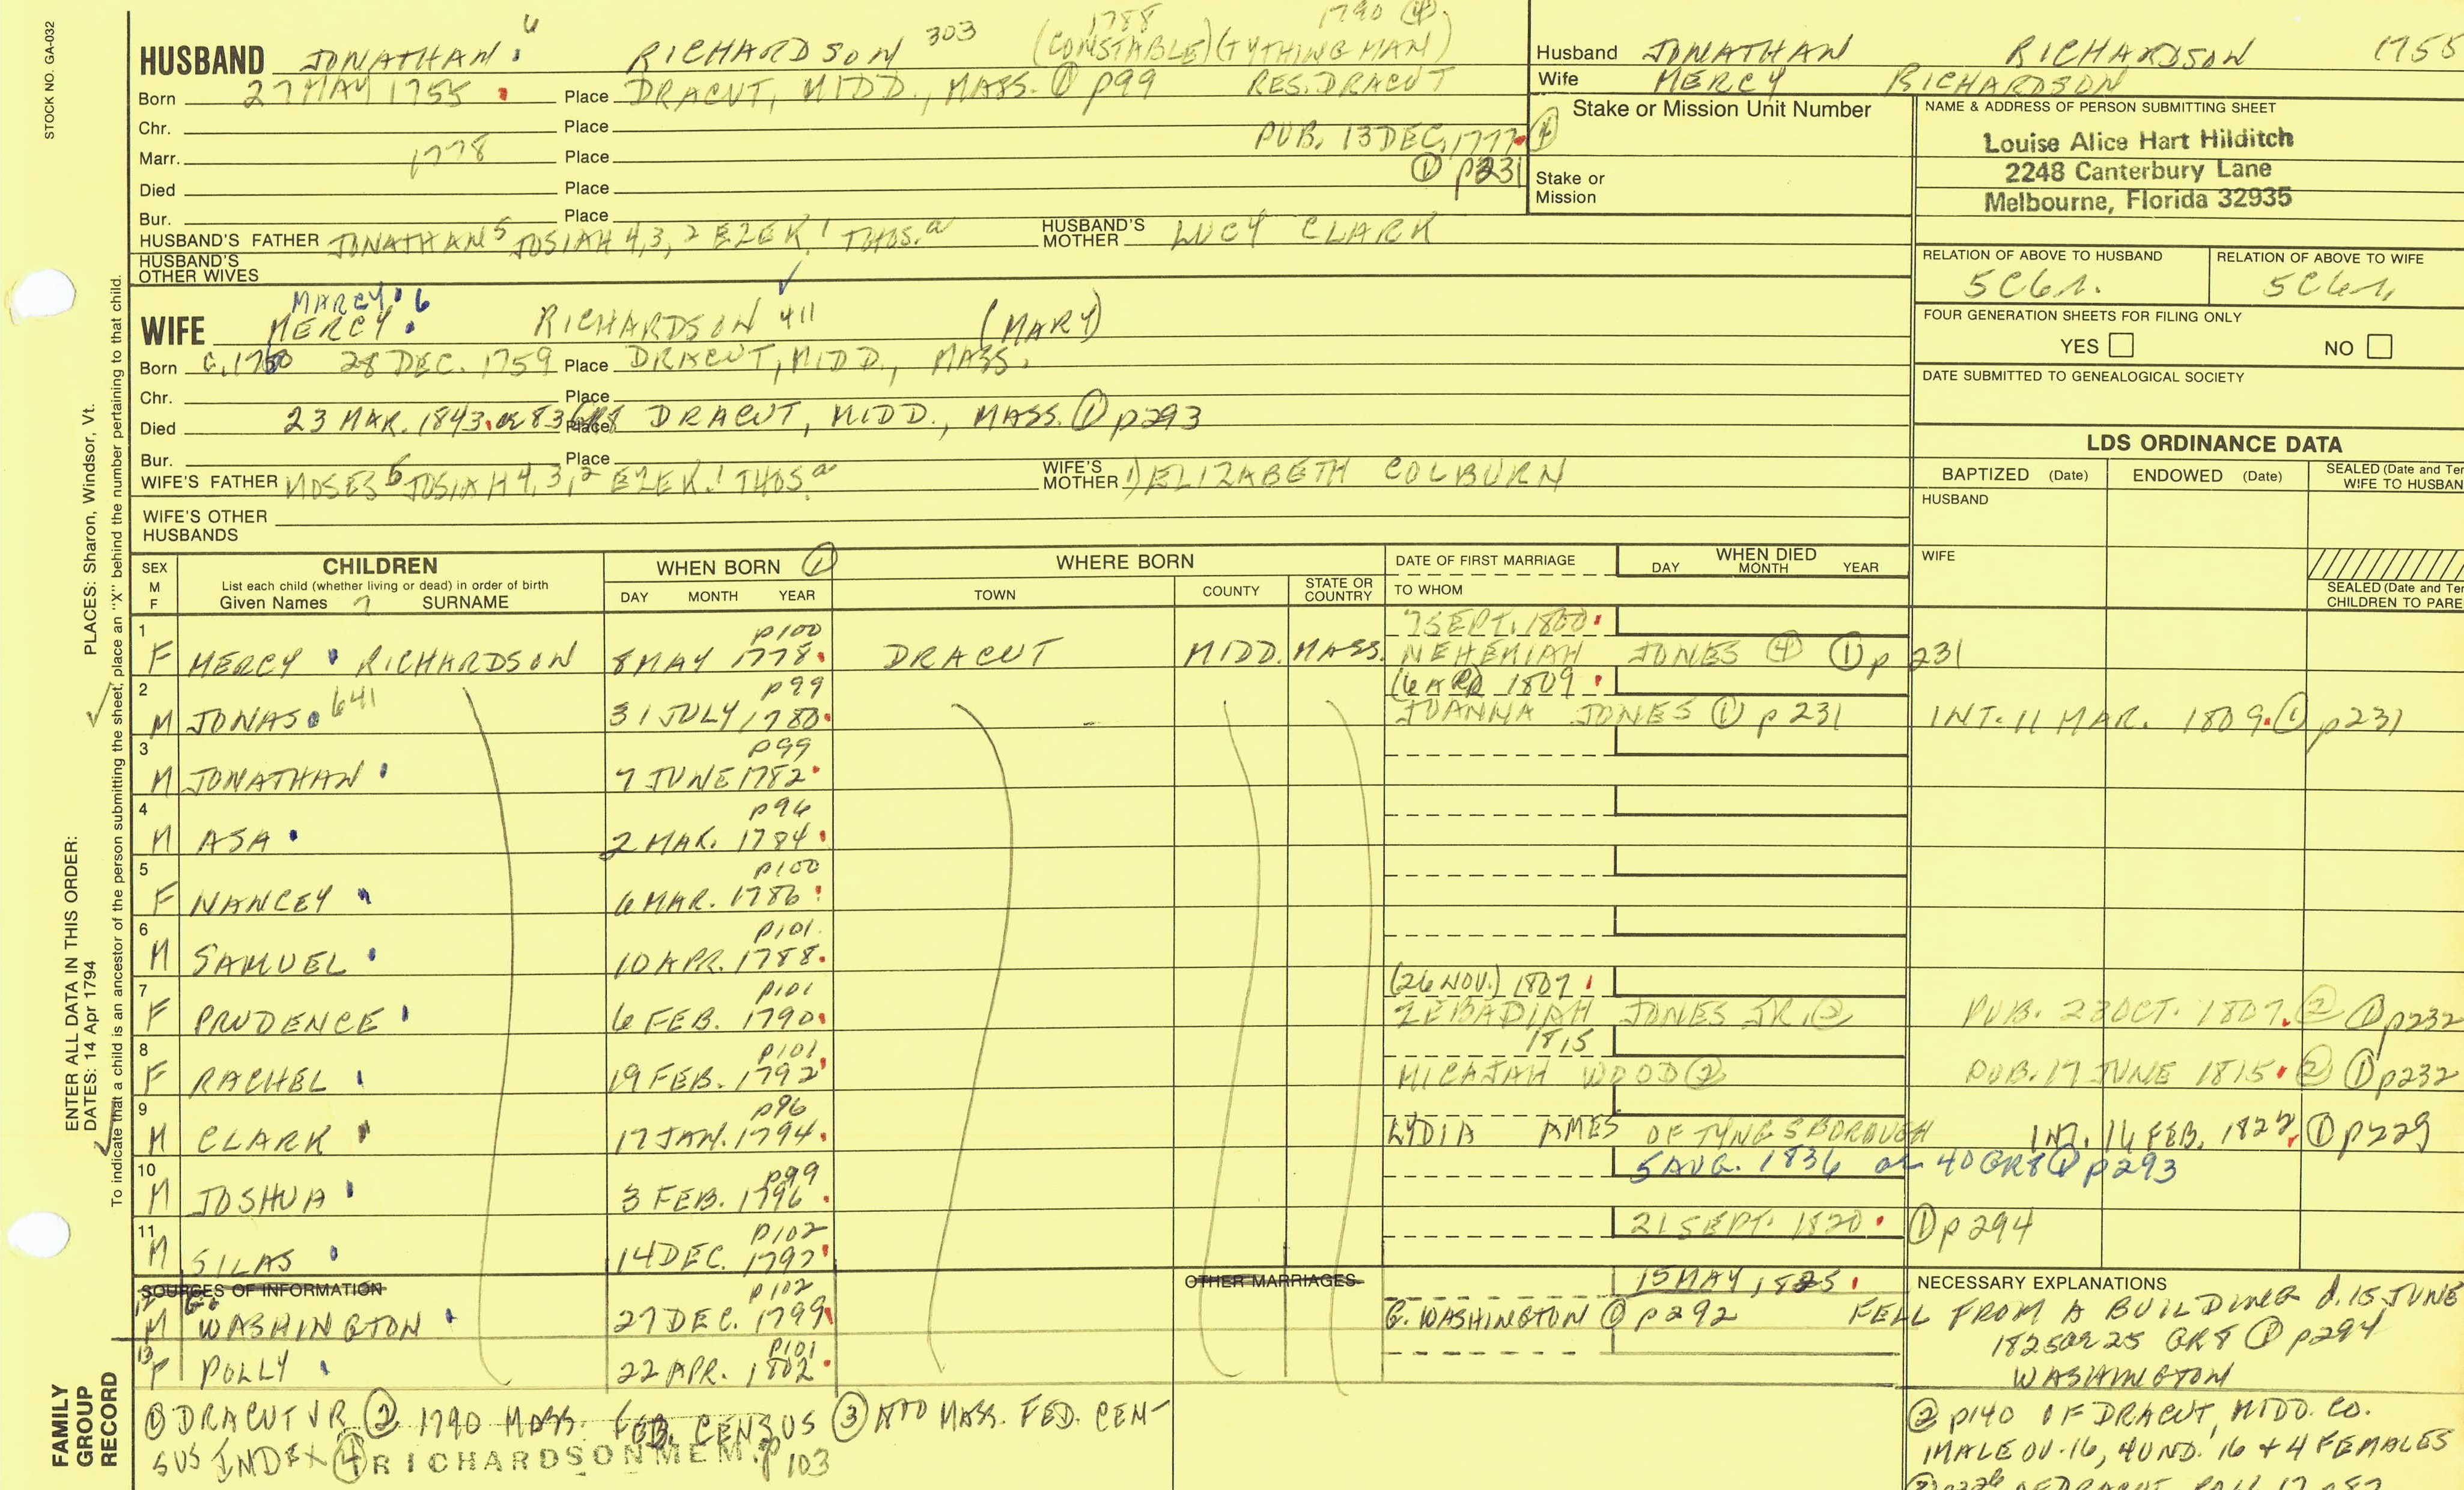 STOCK NO. GA-032
1788 1790 ④
HUSBAND JONATHAN 6 RICHARDSON 303 (CONSTABLE) (TYTHINGMAN)
Born 27 MAY 1755 Place DRACUT, MIDD., MASS. ① p99 RES. DRACUT
Chr. Place
PUB. 13 DEC. 1777 ④
Marr. 1778 Place
① p231
Died Place
Bur. Place
HUSBAND'S FATHER JONATHAN 5 JOSIAH 4,3,2 EZEK. 1 THOS. a HUSBAND'S MOTHER LUCY CLARK
HUSBAND'S OTHER WIVES
MARCY 6
WIFE MERCY RICHARDSON 411 (MARY)
Born 28 DEC. 1759 Place DRACUT, MIDD., MASS.
Chr. Place
Died 23 MAR. 1843 æ 83 GR8 Place DRACUT, MIDD., MASS. ① p293
Bur. Place
WIFE'S FATHER MOSES 5 JOSIAH 4,3,2 EZEK. 1 THOS. a WIFE'S MOTHER 1) ELIZABETH COLBURN
WIFE'S OTHER HUSBANDS
Husband JONATHAN RICHARDSON 1755
Wife MERCY RICHARDSON
Stake or Mission Unit Number
Stake or Mission
NAME & ADDRESS OF PERSON SUBMITTING SHEET
Louise Alice Hart Hilditch
2248 Canterbury Lane
Melbourne, Florida 32935
RELATION OF ABOVE TO HUSBAND RELATION OF ABOVE TO WIFE
5C6r. 5C6r.
FOUR GENERATION SHEETS FOR FILING ONLY
YES NO
DATE SUBMITTED TO GENEALOGICAL SOCIETY
LDS ORDINANCE DATA
BAPTIZED (Date) ENDOWED (Date) SEALED (Date and Tem
WIFE TO HUSBAN
HUSBAND
WIFE
SEALED (Date and Tem
CHILDREN TO PARE
SEX M F CHILDREN WHEN BORN ① WHERE BORN DATE OF FIRST MARRIAGE WHEN DIED
List each child (whether living or dead) in order of birth
Given Names 7 SURNAME DAY MONTH YEAR TOWN COUNTY STATE OR COUNTRY TO WHOM DAY MONTH YEAR
1 p100 7 SEPT. 1800
F MERCY RICHARDSON 8 MAY 1778 DRACUT MIDD. MASS. NEHEMIAH JONES ④ ① p 231
2 p99 (6 APR) 1809
M JONAS 641 31 JULY 1780 JOANNA JONES ① p231 INT. 11 MAR. 1809 ① p231
3 p99
M JONATHAN 7 JUNE 1782
4 p96
M ASA 2 MAR. 1784
5 p100
F NANCEY 6 MAR. 1786
6 p101
M SAMUEL 10 APR. 1788
7 p101 (26 NOV.) 1807
F PRUDENCE 6 FEB. 1790 ZEBADIAH JONES JR. ② PUB. 23 OCT. 1807 ② ① p232
8 p101 1815
F RACHEL 19 FEB. 1792 MICAJAH WOOD ② PUB. 17 JUNE 1815 ② ① p232
9 p96
M CLARK 17 JAN. 1794 LYDIA AMES OF TYNGSBOROUGH INT. 16 FEB. 1822 ① p229
10 p99 5 AUG. 1836 æ 40 GR8 ① p293
M JOSHUA 3 FEB. 1796
11 p102 21 SEPT. 1820 ① p294
M SILAS 14 DEC. 1797
SOURCES OF INFORMATION OTHER MARRIAGES NECESSARY EXPLANATIONS
12 G. p102 15 MAY, 1825
M WASHINGTON 27 DEC. 1799 G. WASHINGTON ① p292 FELL FROM A BUILDING d. 15 JUNE
1825 æ 25 GR8 ① p294
WASHINGTON
13 p101
F POLLY 22 APR. 1802
① DRACUT VR ② 1790 MASS. FED. CENSUS ③ MASS. FED. CEN-
SUS INDEX ④ RICHARDSON MEM. p 103
② p140 OF DRACUT, MIDD. CO.
1 MALE OV. 16, 4 UND. 16 + 4 FEMALES
ENTER ALL DATA IN THIS ORDER:
DATES: 14 Apr 1794 PLACES: Sharon, Windsor, Vt.
To indicate that a child is an ancestor of the person submitting the sheet, place an "X" behind the number pertaining to that child.
FAMILY
GROUP
RECORD